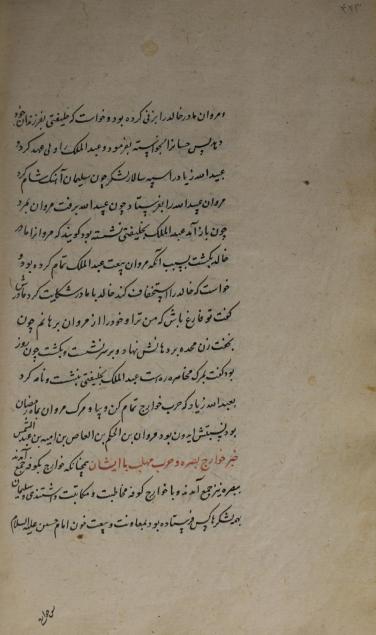 ۴۲۳
و مروان مادر خالد را بزنی کرده بود و خواست که خلیفتی بفرزندان خود
دهد پس حسان را بخواند بفرمود و عبدالملک را ولی عهد کرد
عبیدالله زیاد را سپه سالار لشکر چون سلیمان آهنگ شام کرد
مروان عبیدالله را بفرستاد چون عبیدالله برفت مروان بمرد
چون باز آمد عبدالملک بخلیفتی نشسته بود گویند که مروان را مادر
خالد بکشت بسبب آنکه مروان بیعت عبدالملک تمام کرده بود و
خواست که خالد را استخفاف کند خالد با مادر شکایت کرد مادرش
گفت تو فارغ باش که من ترا و خود را از مروان برهانم چون
بخفت زن مخده بر دهانش نهاد و بر سر نشست و بکشت چون روز
بود گفت بمرگ مفاجا مرده است عبدالملک بخلیفتی بنشست و نامه کرد
بعبیدالله زیاد که حرب خوارج تمام کن و بیا و مرگ مروان بماه رمضان
بود نسبتش ایدون بود مروان بن الحکم بن العاص بن امیه بن عبدالشمس
خبر خوارج بصره و حرب مهلب با ایشان همچنانکه خوارج بکوفه جمع آمدند
ببصره نیز جمع آمدند و با خوارج کوفه مخاطبت و مکاتبت داشتندی و سلیمان
بهمه شهرها کس فرستاده بود بمعاونت و بیعت خون امام حسین علیه السلام